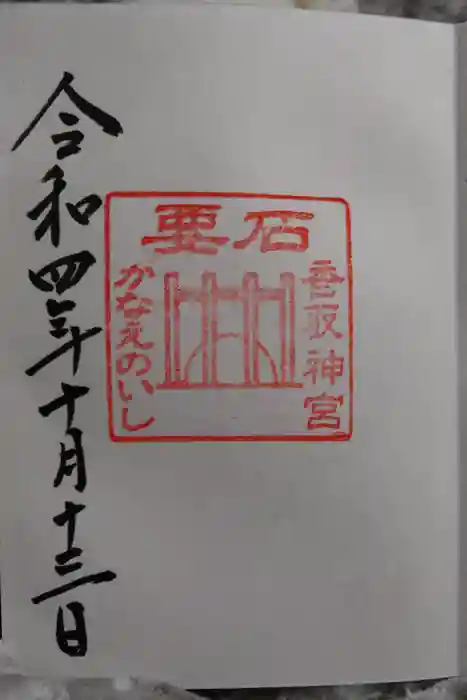 要石
香取神宮
かなえのいし
令和四年十月十三日